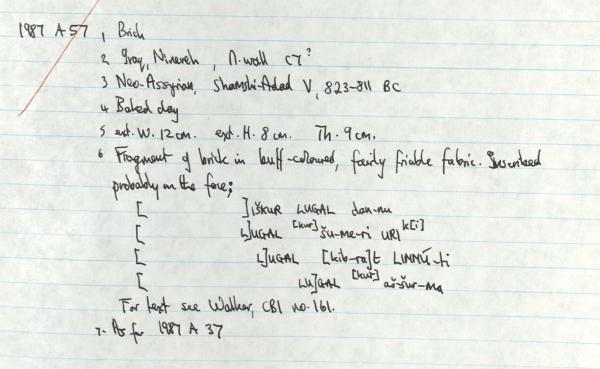 1987 A 57 1 Brick
2 Iraq, Nineveh, N. wall C7?
3 Neo-Assyrian, Shamshi-Adad V, 823-811 BC
4 Baked clay
5 ext. W. 12 cm. ext. H. 8 cm. Th. 9 cm.
6 Fragment of brick in buff-coloured, fairly friable fabric. Inscribed
probably on the face;
[ ]IŠKUR LUGAL dan-nu
[ L]UGAL [kur] šu-me-ri URI k[i]
[ L]UGAL [kib-ra]t LIMMÚ-ti
[ LU]GAL [kur] aš-šur-ma
For text see Walker, CBI no. 161.
7. As for 1987 A 37